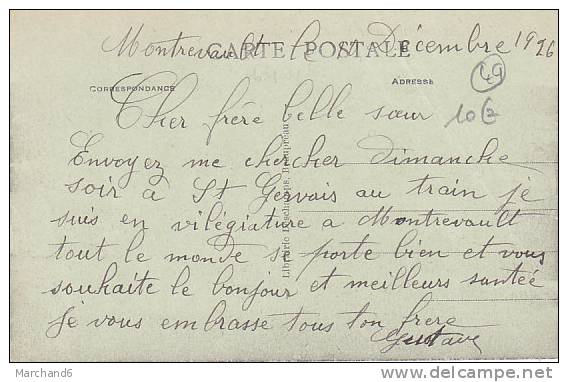 Montrevault le Décembre 1926
CARTE POSTALE
CORRESPONDANCE
ADRESSE
49
10€
Cher frère belle sœur
Envoyez me chercher Dimanche
soir à St Gervais au train je
suis en vilégiature a Montrevault
tout le monde se porte bien et vous
souhaite le bonjour et meilleurs santée
je vous embrasse tous ton frere
Gustave
Librairie Beaupréau
Marchand6
www.delcampe.net